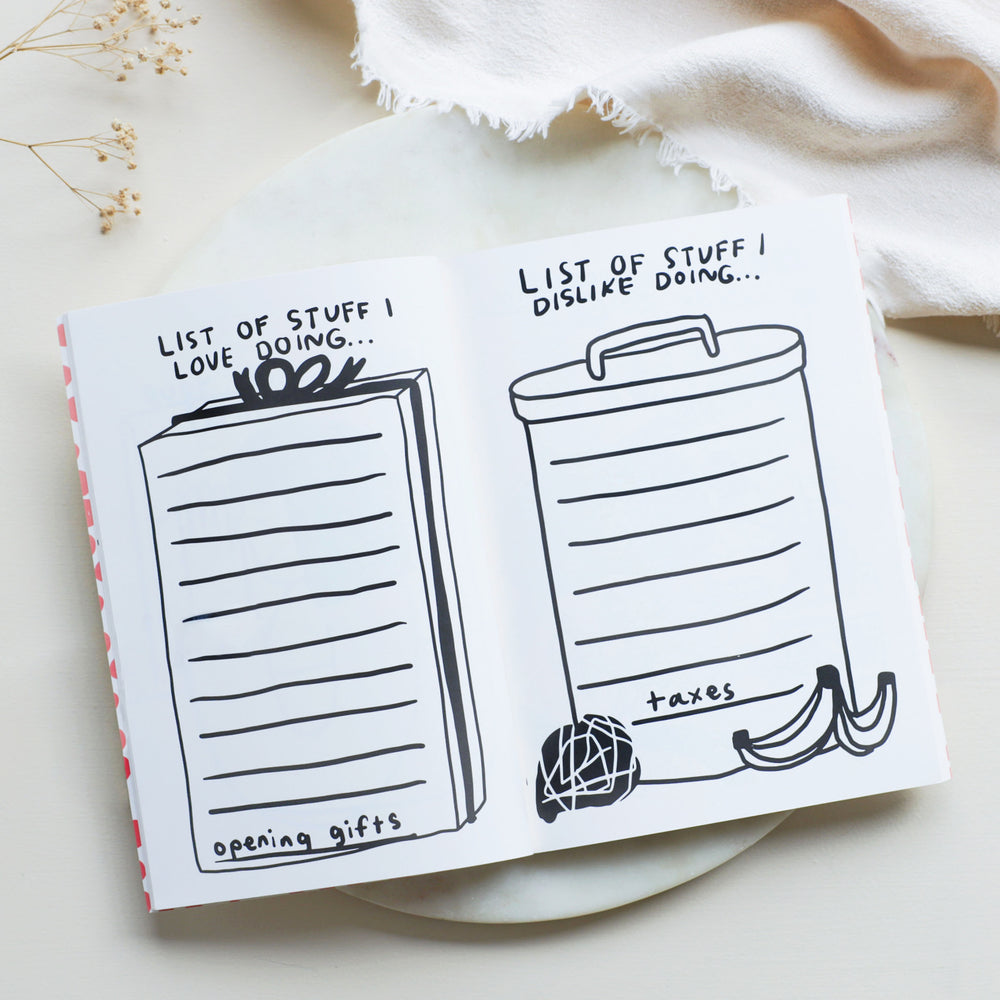 LIST OF STUFF I
LOVE DOING...
opening gifts
LIST OF STUFF I
DISLIKE DOING...
taxes